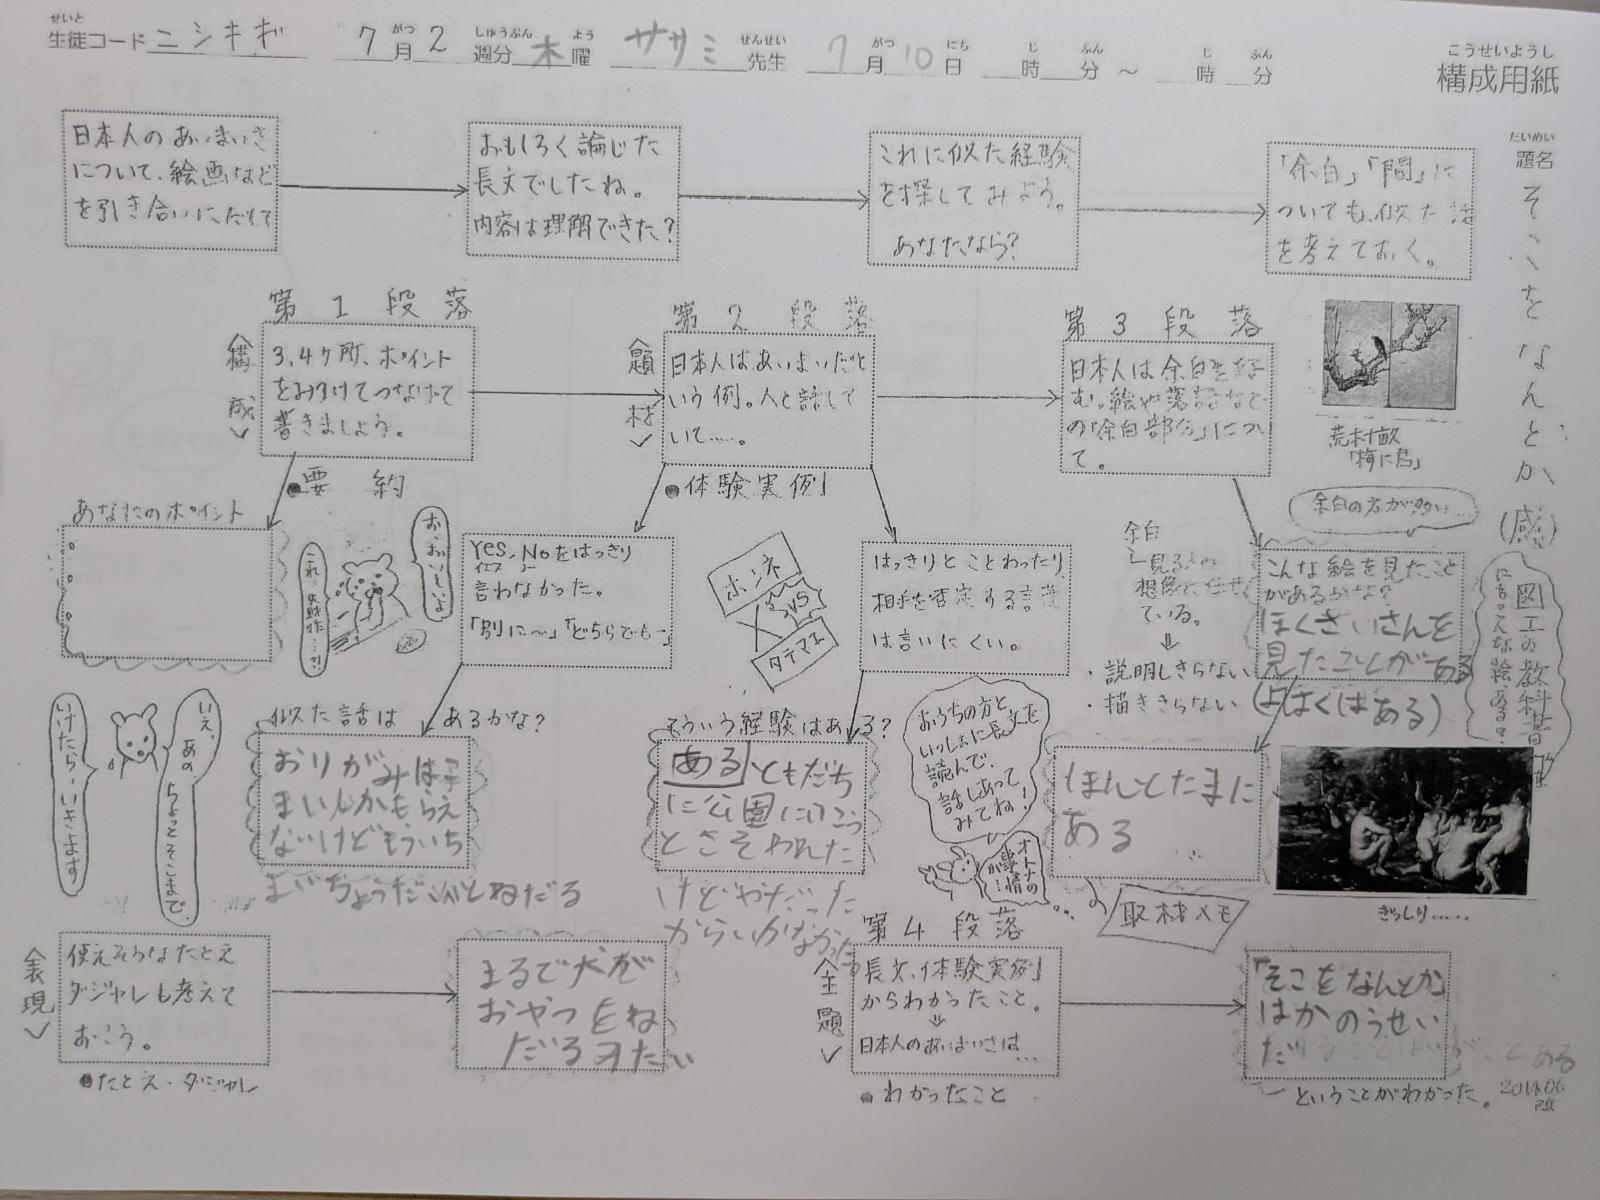 せいと
生徒コード ニシキギ 7月2週分 木曜 ササミ先生 7月10日 時 分 ～ 時 分
がつ しゅうぶん よう せんせい がつ にち じ ふん じ ふん
こうせいようし
構成用紙
だいめい
題名 そこをなんとか(感)
日本人のあいまいさ
について、絵画など
を引き合いにだして
おもしろく論じた
長文でしたね。
内容は理解できた？
これに似た経験
を探してみよう。
あなたなら？
「余白」「間」に
ついても、似た話
を考えておく。
第1段落
〈構成〉
3、4ケ所、ポイント
をみつけてつなげて
書きましょう。
●要約
あなたのポイント
お、おいしいよ
これ…失敗作…?!
第2段落
〈題材〉
日本人はあいまいだと
いう例。人と話して
いて……。
●体験実例
Yes、Noをはっきり
イエス ノー
言わなかった。
「別に～」「どちらでも－」
ホンネ
VS
タテマエ
はっきりとことわったり、
相手を否定する言葉
は言いにくい。
第3段落
日本人は余白を好
む。絵や落語など
の「余白部分」につい
て。
「梅に鳥」
余白の方が多い…
余白
見る人の
想像に任せ
ている。
⇓
・説明しきらない
・描ききらない
こんな絵を見たこと
があるかな？
ほくさいさんを
見たことがある
(よはくはある)
図工の教科書に
ほんとたまに
ある
取材メモ
ぎっしり……
似た話は あるかな？
おりがみは2
まいしかもらえ
ないけどもういち
まいちょうだいとねだる
いえ、あの、ちょっとそこまで、
いけたら…いきます。
そういう経験はある？
ある ともだち
に公園にいこう
とさそわれた
けどやだった
からいかなかった
おうちの方と
いっしょに長文を
読んで、
話しあって
みてね！
オトナの
事情
が…
〈表現〉
使えそうなたとえ
ダジャレも考えて
おこう。
●たとえ・ダジャレ
まるで犬が
おやつをね
だるみたい
第4段落
〈主題〉
長文、体験実例
からわかったこと。
⇓
日本人のあいまいさは…
●わかったこと
「そこをなんとか」
はかのうせい
だ
ある
ということがわかった。